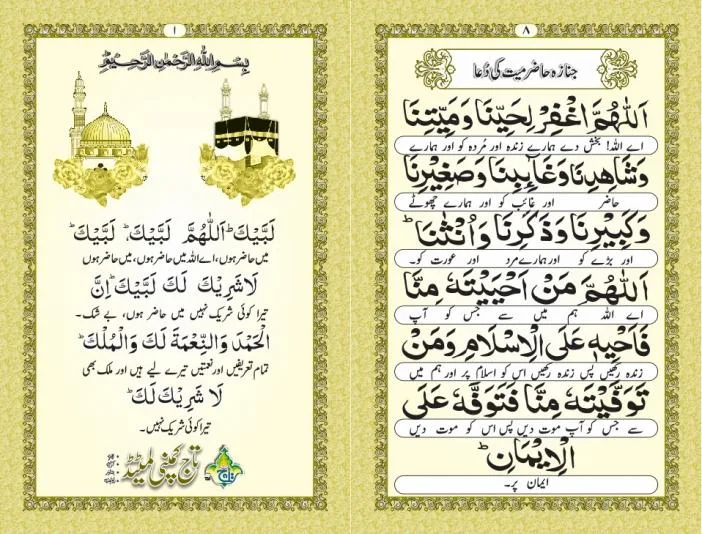 ۸
جنازہ حاضر میت کی دُعا
اَللّٰهُمَّ اغْفِرْ لِحَيِّنَا وَمَيِّتِنَا
اے اللہ! بخش دے ہمارے زندہ اور مُردہ کو اور ہمارے
وَشَاهِدِنَا وَغَآئِبِنَا وَصَغِيْرِنَا
حاضر اور غائب کو اور ہمارے چھوٹے
وَكَبِيْرِنَا وَذَكَرِنَا وَاُنْثٰنَا ؕ
اور بڑے کو اور ہمارے مرد اور عورت کو۔
اَللّٰهُمَّ مَنْ اَحْيَيْتَهٗ مِنَّا
اے اللہ ہم میں سے جس کو آپ
فَاَحْيِهٖ عَلَى الْاِسْلَامِ وَمَنْ
زندہ رکھیں پس زندہ رکھیں اس کو اسلام پر اور ہم میں
تَوَفَّيْتَهٗ مِنَّا فَتَوَفَّهٗ عَلَى
سے جس کو آپ موت دیں پس اس کو موت دیں
الْاِيْمَانِ ؕ
ایمان پر۔
۱
بِسْمِ اللّٰهِ الرَّحْمٰنِ الرَّحِيْمِ
لَبَّيْكَ ؕ اَللّٰهُمَّ لَبَّيْكَ ؕ لَبَّيْكَ ؕ
میں حاضر ہوں، اے اللہ میں حاضر ہوں، میں حاضر ہوں
لَاشَرِيْكَ لَكَ لَبَّيْكَ ؕ اِنَّ
تیرا کوئی شریک نہیں میں حاضر ہوں، بے شک۔
الْحَمْدَ وَالنِّعْمَةَ لَكَ وَالْمُلْكَ ؕ
تمام تعریفیں اور نعمتیں تیرے لیے ہیں اور ملک بھی
لَا شَرِيْكَ لَكَ ؕ
تیرا کوئی شریک نہیں۔
تاج کمپنی لمیٹڈ